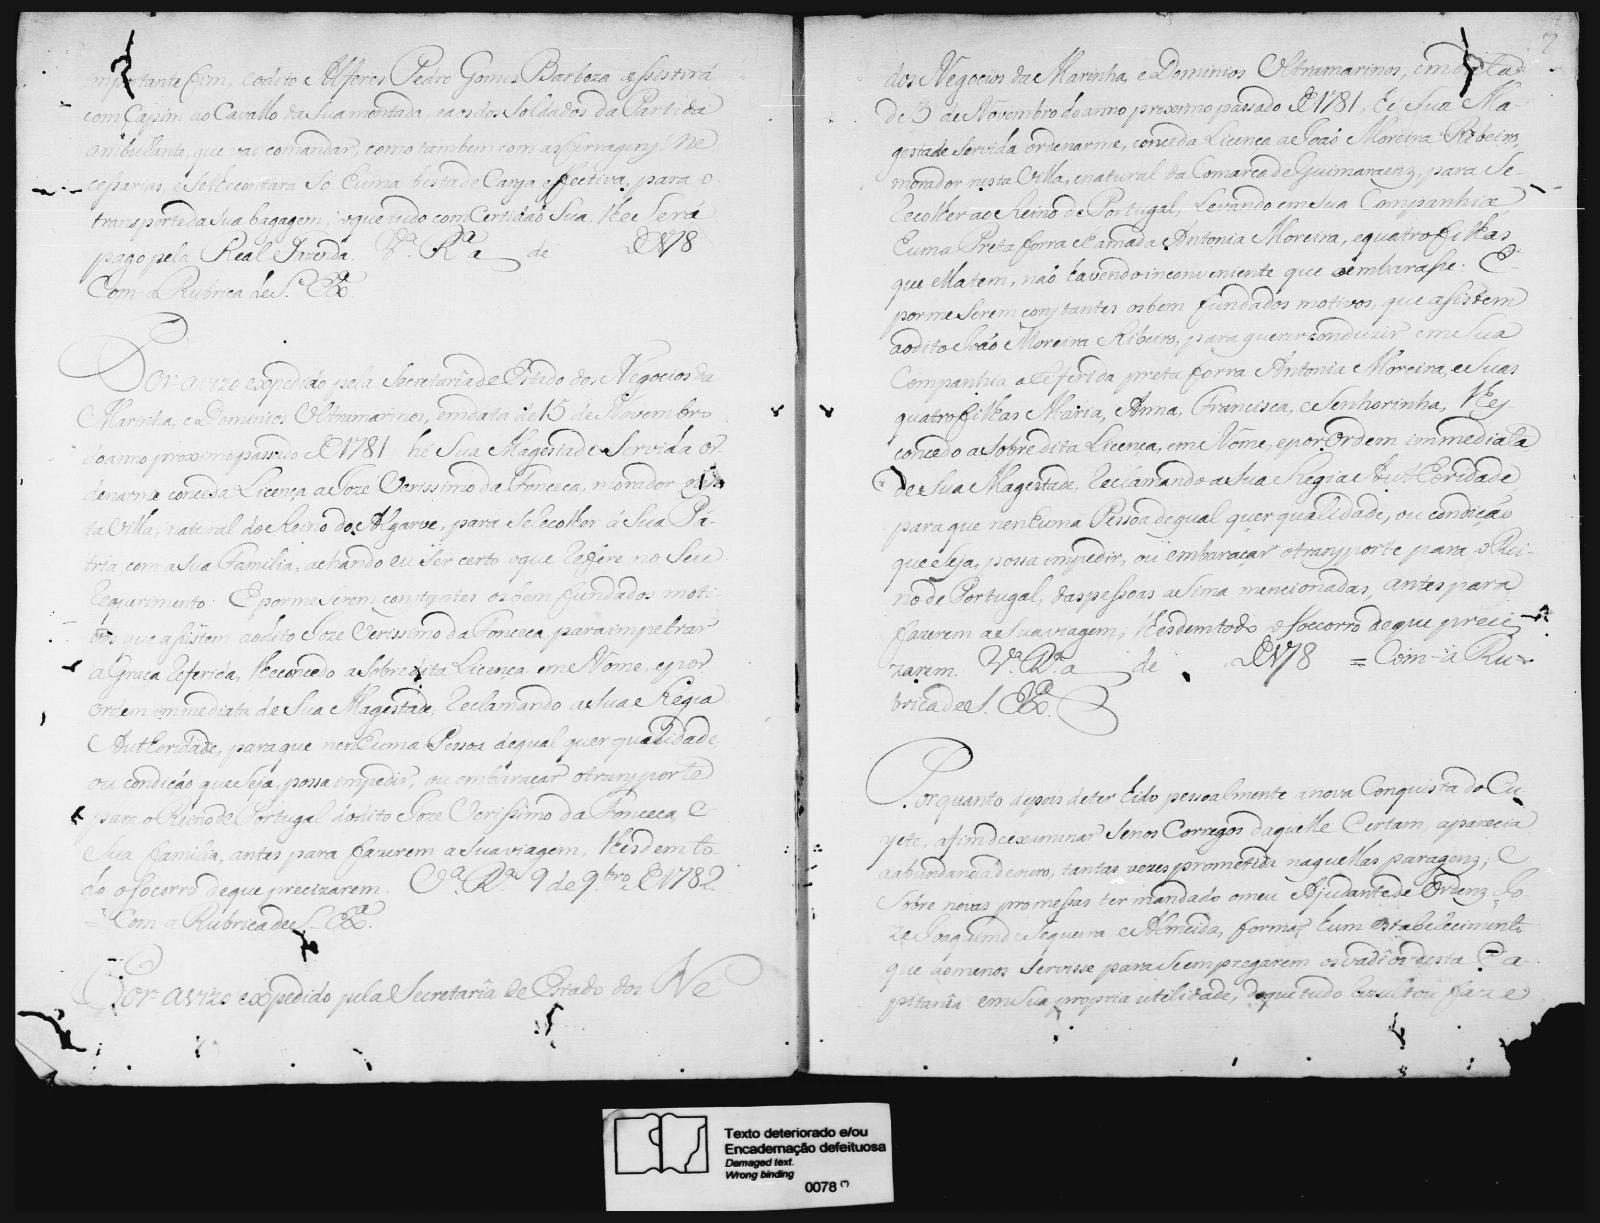 importante fim, e o dito Alferes Pedro Gomes Barboza assistirá
com Capim ao Cavallo da Sua montada, e aos dos Soldados da Partida
ambulante, que vai comandar, como tambem com as ferragens Ne
cessarias, e Se lhe contará Só huma besta de Carga effectiva, para o
transporte da Sua bagagem; o que tudo com Certidaõ Sua, lhe Será
pago pela Real Fazenda. Va. Ra. a de de 178
Com a Rubrica de S. Exa.
Por avizo expedido pela Secretaria de Estado dos Negocios da
Marinha, e Dominios Ultramarinos, em data de 15 de Novembro
do anno proximo passado de 1781 hé Sua Magestade Servida or
denarme conceda Licença a Joze Verissimo da Fonceca, morador nes
ta Villa, natural do Reino do Algarve, para Se recolher á Sua Pa-
tria com a Sua Familia, achando eu Ser certo o que refere no Seu
Requerimento: E por me Serem constantes os bem fundados moti-
vos que assistem ao dito Joze Verissimo da Fonceca, para impetrar
a Graça referida, lhe concedo a Sobredita Licença em Nome, e por
Ordem immediata de Sua Magestade, reclamando a Sua Regia
Authoridade, para que nenhuma Pessoa de qual quer qualidade,
ou condicáo que Seja, possa impedir, ou embaraçar o transporte
para o Reino de Portugal do dito Joze Verissimo da Fonceca, e
Sua familia, antes para fazerem a Sua viagem, lhes dem to-
do o Socorro de que precizarem. Va. Ra. 9 de 9.bro de 1782.
= Com a Rubrica de S. Exa.
Por avizo expedido pela Secretaria de Estado dos Ne
7
dos Negocios da Marinha, e Dominios Ultramarinos, em data
de 3 de Novembro do anno proximo passado de 1781, hé Sua Ma-
gestade Servida ordenarme, conceda Licença a João Moreira Ribeiro,
morador nesta Villa, e natural da Comarca de Guimaraens, para Se
recolher ao Reino de Portugal, Levando em Sua Companhia
huma Preta forra chamada Antonia Moreira, e quatro filhas
que lhe tem, naõ havendo inconveniente que o embarasse: E
por me Serem constantes os bem fundados motivos, que assistem
ao dito Joáo Moreira Ribeiro, para querer conduzir em Sua
Companhia a referida preta forra Antonia Moreira, e Suas
quatro filhas Maria, Anna, Francisca, e Senhorinha, lhes
concedo a Sobredita Licença, em Nome, e por Ordem immediata
de Sua Magestade, reclamando a Sua Regia Authoridade
para que nenhuma Pessoa de qual quer qualidade, ou condição
que Seja, possa impedir, ou embaraçar o transporte para o Rei-
no de Portugal, das pessoas aSima mencionadas, antes para
fazerem a Sua viagem, lhes dem todo o Soccorro de que preci
zarem. Va. Ra. a de de 178 = Com a Ru-
brica de S. Exa.
Porquanto depois de ter hido pessoalmente a nova Conquista do Cu-
yeté, afim de examinar Se nos Corregos daquelle Certam, aparecia
a abundancia de ouro, tantas vezes prometida naquellas paragens; e
Sobre novas promessas ter mandado o meu Ajudante de Ordens Jo-
zé Joaquim de Sequeira e Almeida, formar hum estabelecimento
que ao menos Servisse para Se empregarem os vadîos desta Ca-
pitania em Sua propria utilidade, do que tudo rezultou fazer
Texto deteriorado e/ou
Encadernação defeituosa
Damaged text.
Wrong binding
0078 (*)